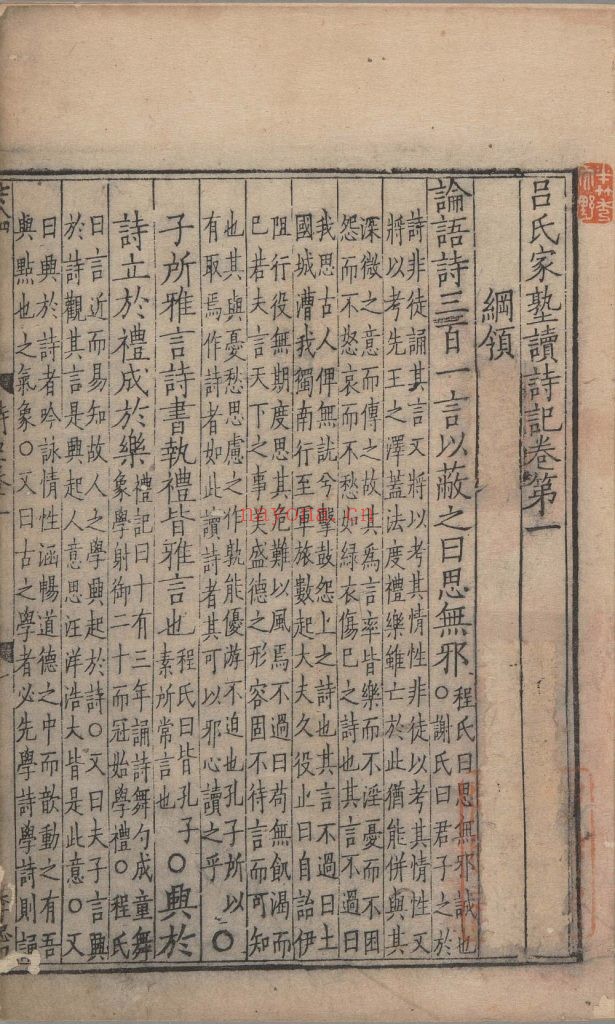 呂氏家塾讀詩記卷第一
綱領
論語詩三百一言以蔽之曰思無邪
程氏曰思無邪誠也
○謝氏曰君子之於
詩非徒誦其言又將以考其情性非徒以考其情性又
將以考先王之澤蓋法度禮樂雖亡於此猶能併與其
深微之意而傳之故其為言率皆樂而不淫憂而不困
怨而不怒哀而不愁如綠衣傷已之詩也其言不過曰
我思古人俾無訧兮擊鼓怨上之詩也其言不過曰土
國城漕我獨南行至軍旅數起大夫久役止曰自詒伊
阻行役無期度思其危難以風焉不過曰苟無飢渴而
已若夫言天下之事以盛德之形容固不待言而可知
也其與憂愁思慮之作孰能優游不迫也孔子所以
有取焉作詩者如此讀詩者其可以邪心讀之乎
○
子所雅言詩書執禮皆雅言也
程氏曰皆孔子
素所常言也
○興於
詩立於禮成於樂
禮記曰十有三年誦詩舞勺成童舞
象學射御二十而冠始學禮○程氏
曰言近而易知故人之學興起於詩○又曰夫子言興
於詩觀其言是興起人意思汪洋浩大皆是此意○又
曰興於詩者吟詠情性涵暢道德之中而歆動之有吾
與點也之氣象○又曰古之學者必先學詩學詩則誦
nayona.cn